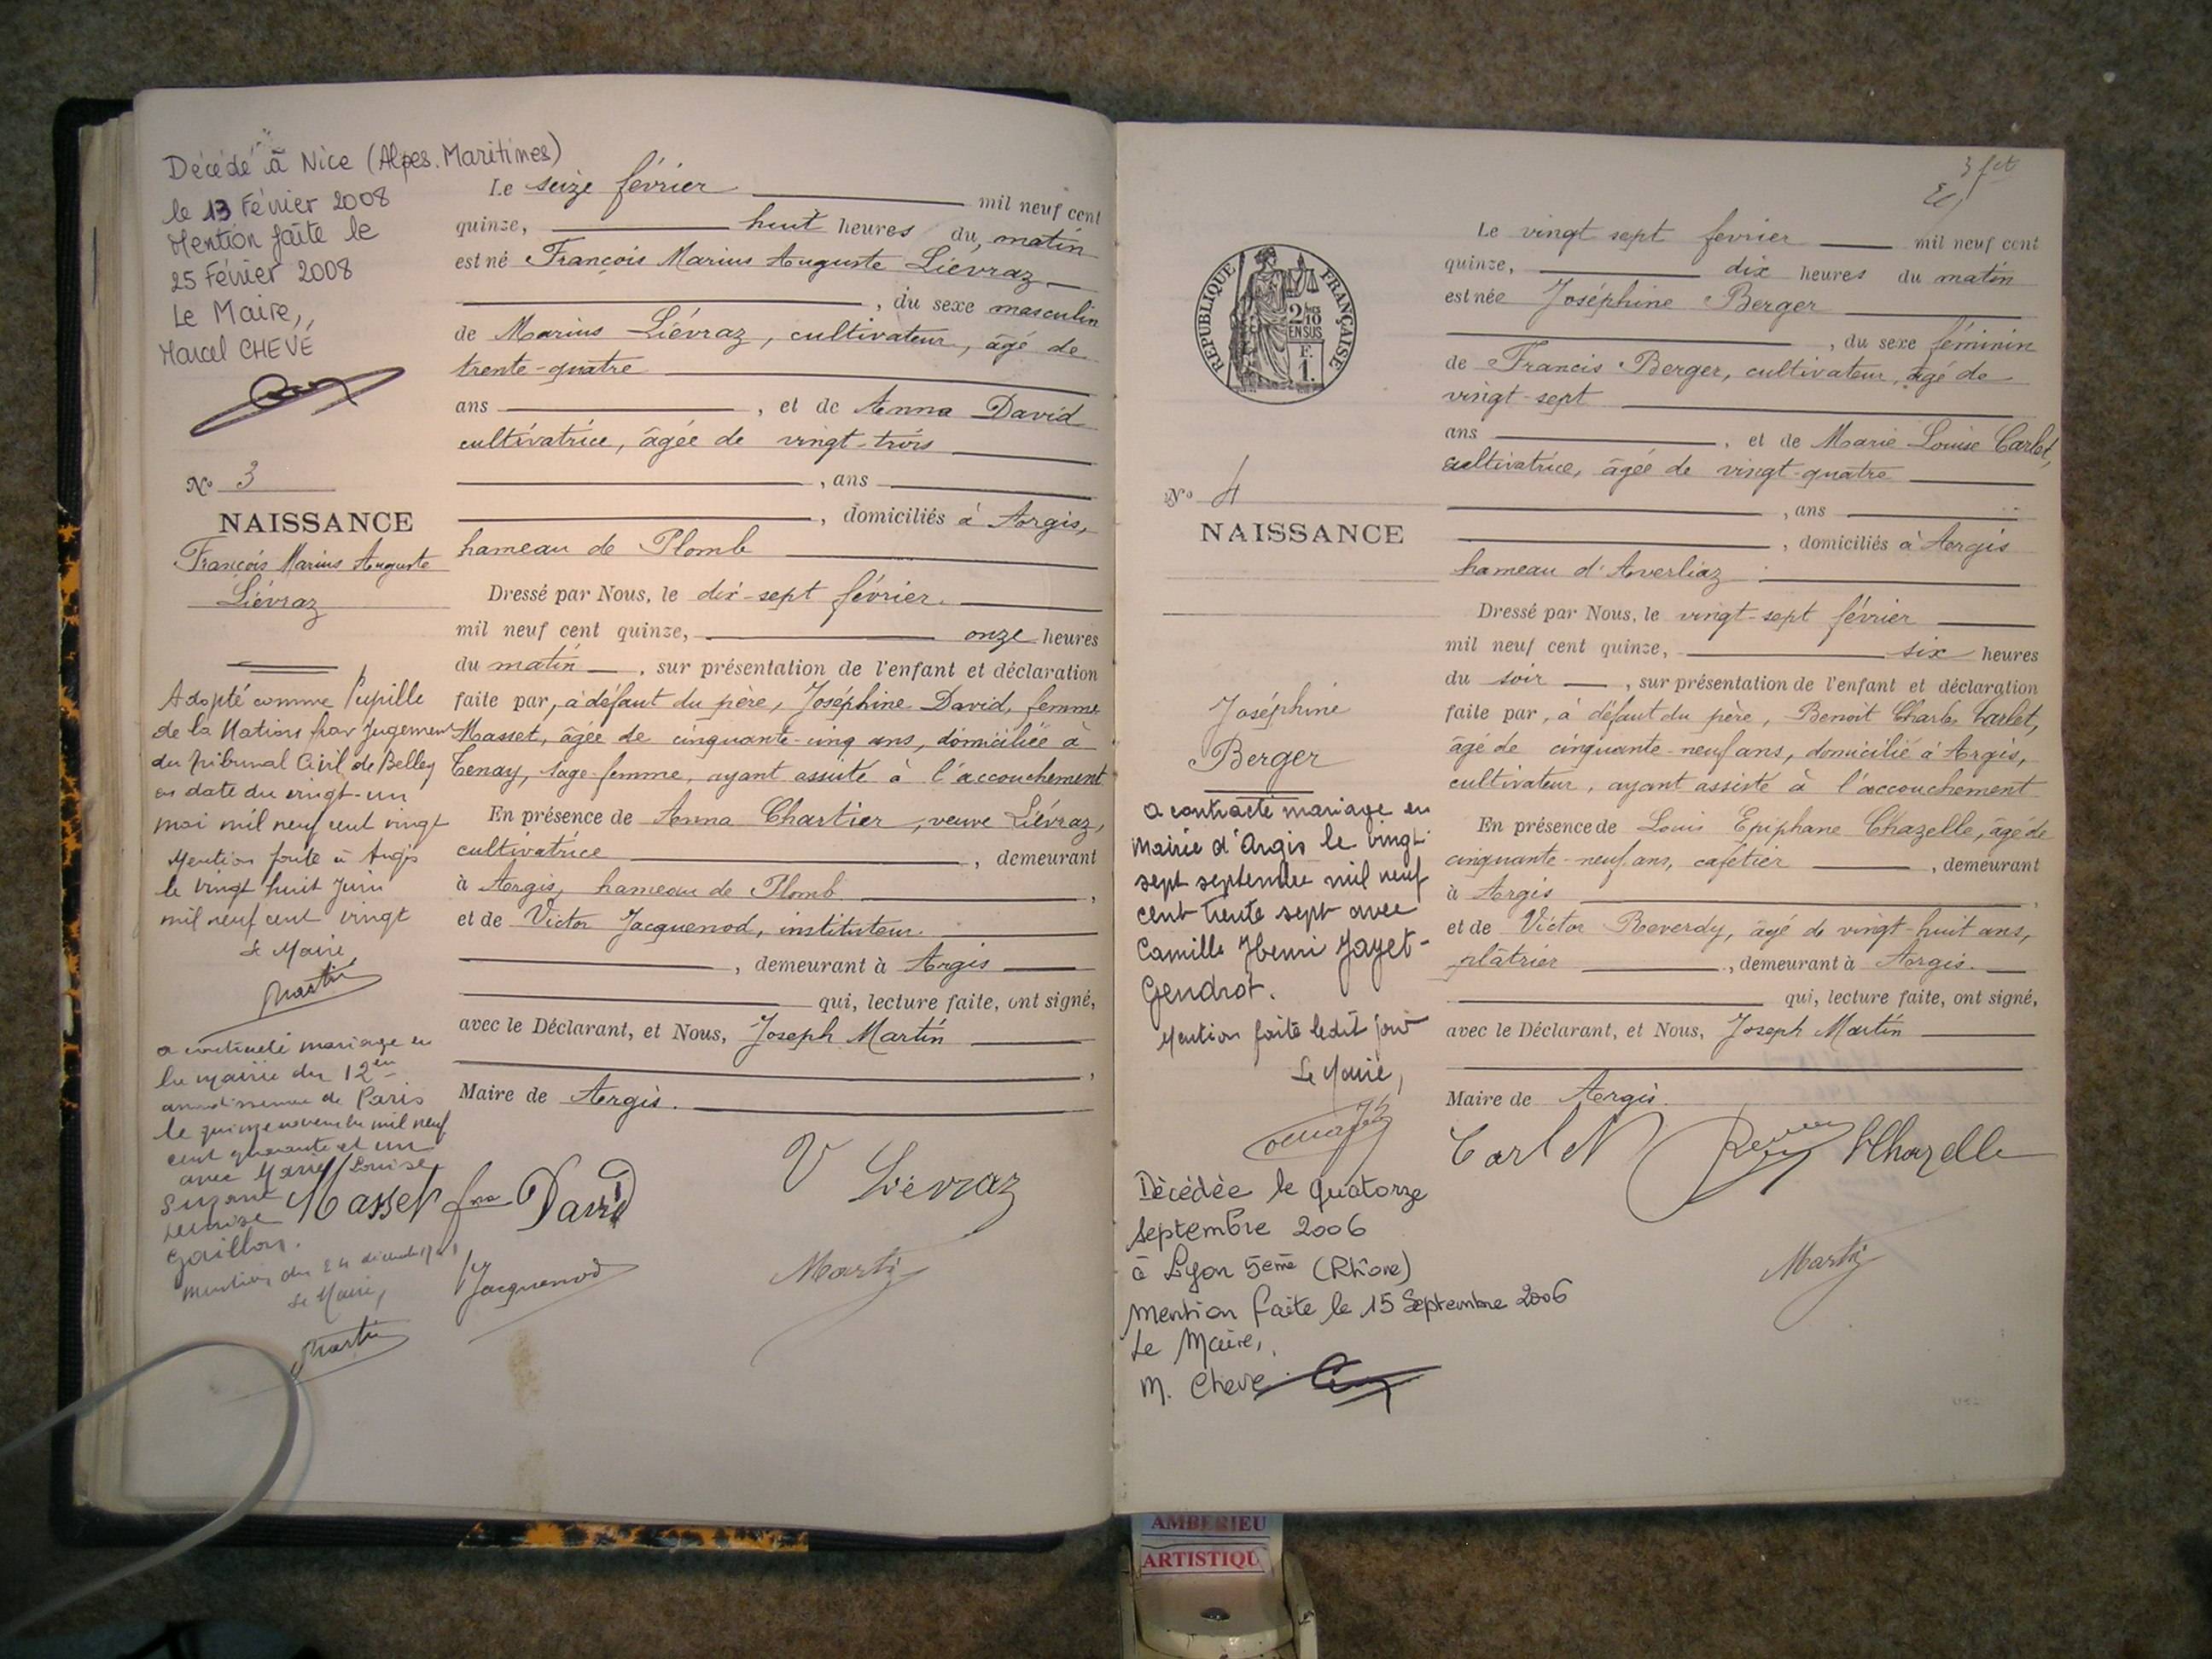 Décédé à Nice (Alpes.Maritimes)
le 13 Février 2008
Mention faite le
25 Février 2008
Le Maire,
Marcel CHEVÉ
No 3
NAISSANCE
François Marius Auguste
Liévraz
Adopté comme Pupille
de la Nation par jugement
du Tribunal Civil de Belley
en date du vingt-un
mai mil neuf cent vingt
Mention faite à Argis
le vingt huit Juin
mil neuf cent vingt
Le Maire
Martin
a contracté mariage en
la mairie du 12em
arrondissement de Paris
le quinze novembre mil neuf
cent quarante et un
avec Marie Louise
Suzanne
Denise
Gaillon.
Mention du 24 décembre 1941
Le Maire,
Martin
Le seize février mil neuf cent
quinze, huit heures du matin
est né François Marius Auguste Liévraz
, du sexe masculin
de Marius Liévraz, cultivateur, âgé de
trente-quatre
ans , et de Anna David
cultivatrice, âgée de vingt-trois
, ans
, domiciliés à Argis,
hameau de Plomb
Dressé par Nous, le dix-sept février.
mil neuf cent quinze, onze heures
du matin , sur présentation de l'enfant et déclaration
faite par, à défaut du père, Joséphine David, femme
Masset, âgée de cinquante-cinq ans, domiciliée à
Tenay, sage-femme, ayant assisté à l'accouchement
En présence de Anna Chartier, veuve Liévraz,
cultivatrice , demeurant
à Argis, hameau de Plomb ,
et de Victor Jacquenod, instituteur
, demeurant à Argis
qui, lecture faite, ont signé,
avec le Déclarant, et Nous, Joseph Martin
,
Maire de Argis.
V Liévraz
Masset fme David
Jacquenod
Martin
3 fet
RÉPUBLIQUE FRANÇAISE
2/10
EN SUS
F.
1.
No 4
NAISSANCE
Joséphine
Berger
a contracté mariage en
mairie d'Argis le vingt
sept septembre mil neuf
cent trente sept avec
Camille Henri Jayet-
Gendrot.
Mention faite ledit jour
Le Maire,
Décédée le quatorze
septembre 2006
à Lyon 5ème (Rhône)
mention faite le 15 Septembre 2006
Le Maire,
M. Cheve
Le vingt sept fevrier mil neuf cent
quinze, dix heures du matin
est née Joséphine Berger
, du sexe féminin
de Francis Berger, cultivateur, âgé de
vingt-sept
ans , et de Marie Louise Carlet,
cultivatrice, âgée de vingt-quatre
, ans
, domiciliés à Argis
hameau d'Averliaz
Dressé par Nous, le vingt-sept février
mil neuf cent quinze, six heures
du soir , sur présentation de l'enfant et déclaration
faite par, à défaut du père, Benoit Charles Carlet,
âgé de cinquante-neuf ans, domicilié à Argis,
cultivateur, ayant assisté à l'accouchement
En présence de Louis Epiphane Chazelle, âgé de
cinquante-neuf ans, cafetier , demeurant
à Argis ,
et de Victor Reverdy, âgé de vingt-huit ans,
plâtrier , demeurant à Argis.
qui, lecture faite, ont signé,
avec le Déclarant, et Nous, Joseph Martin
Maire de Argis.
Carlet Chazelle
Martin
AMBERIEU
ARTISTIQU